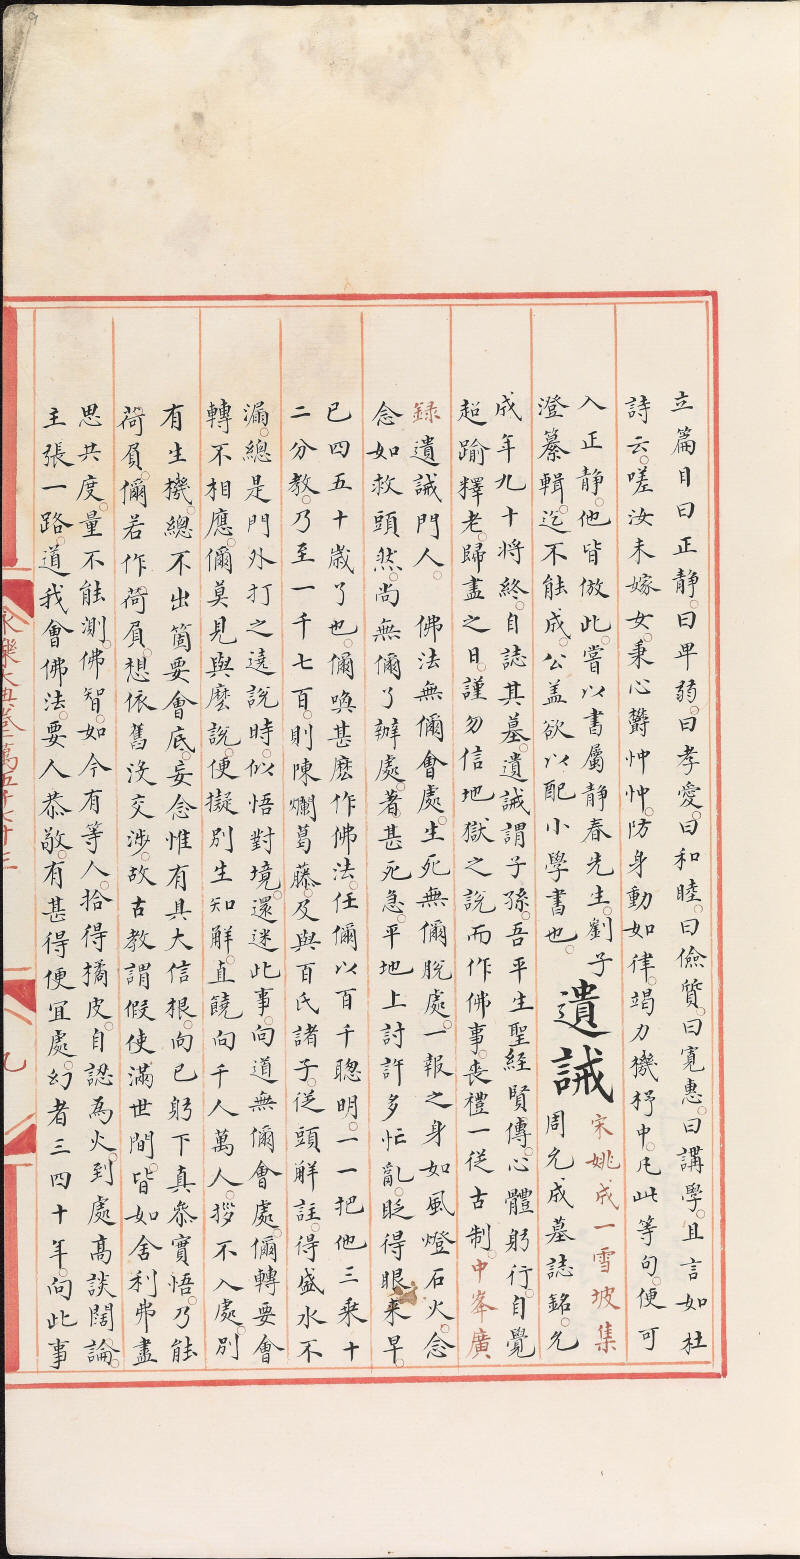 立篇目曰正静。曰卑弱。曰孝愛。曰和睦。曰儉質。曰寛惠。曰講學。且言如杜
詩云。嗟汝未嫁女。秉心鬱忡忡。防身動如律。竭力機杼中。凡此等句。便可
入正静。他皆倣此。嘗以書屬静春先生。劉子
澄纂輯。迄不能成。公盖欲以配小學書也。
遺誡
宋姚成一雪坡集
周允成墓誌銘。允
成年九十將終。自誌其墓。遺誡謂子孫。吾平生聖經賢傳。心體躬行。自覺
超踰釋老。歸盡之日。謹勿信地獄之說而作佛事。喪禮一從古制。中峯廣
録遺誡門人。 佛法無儞會處。生死無儞脫處。一報之身如風燈石火。念
念如救頭然。尚無儞了辦處。著甚死急。平地上討許多忙亂。眨得眼来早。
已四五十歲了也。儞喚甚麽作佛法。任儞以百千聰明。一一把他三乘十
二分教。乃至一千七百。則陳爛葛藤。及與百氏諸子。從頭解註。得盛水不
漏。總是門外打之遶說時。似悟對境。還迷此事。向道無儞會處。儞轉要會
轉不相應。儞莫見與麽說。便擬別生知解。直饒向千人萬人。拶不入處。別
有生機。總不出箇要會底。妄念惟有具大信根。向己躬下真叅實悟。乃能
荷負。儞若作荷負。想依舊沒交涉。故古教謂假使滿世間。皆如舍利弗盡
思共度。量不能測。佛智。如今有等人。拾得橘皮。自認為火。到處髙談闊論。
主張一路。道我會佛法。要人恭敬。有甚得便冝處。幻者三四十年。向此事
永樂大典卷二萬五千七十三
九